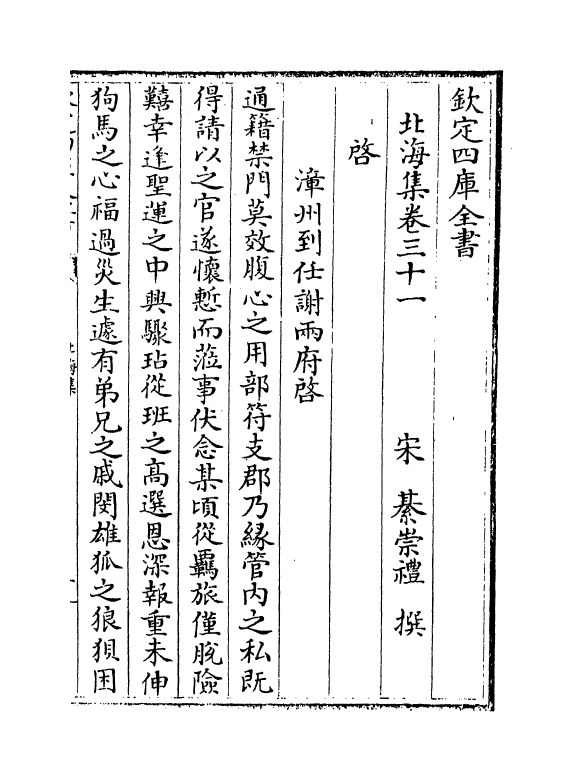 欽定四庫全書
北海集卷三十一
宋 綦崇禮 撰
啓
漳州到任謝兩府啓
通籍禁門莫效腹心之用部符支郡乃緣管內之私既
得請以之官遂懷慙而蒞事伏念某頃從羈旅僅脫險
囏幸逢聖運之中興驟玷從班之高選恩深報重未伸
狗馬之心福過災生遽有弟兄之戚閔雄狐之狼狽困
北海集